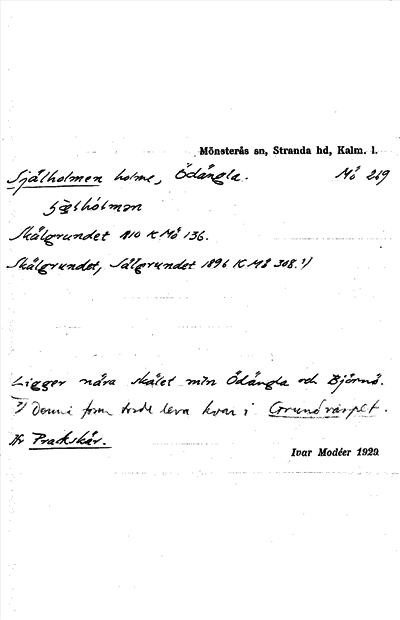 Mönsterås sn, Stranda hd, Kalm. l.
Själholmen holme, Ödängla. Mö 269
Skälgrundet 1810 K Mö 136.
Skälgrundet, Sälgrundet 1896 K Mö 308.¹)
Ligger nära skälet mln Ödängla och Björnö.
¹) Denna form torde leva kvar i Grundvarpet.
Jfr Prackskär.
Ivar Modéer 1929